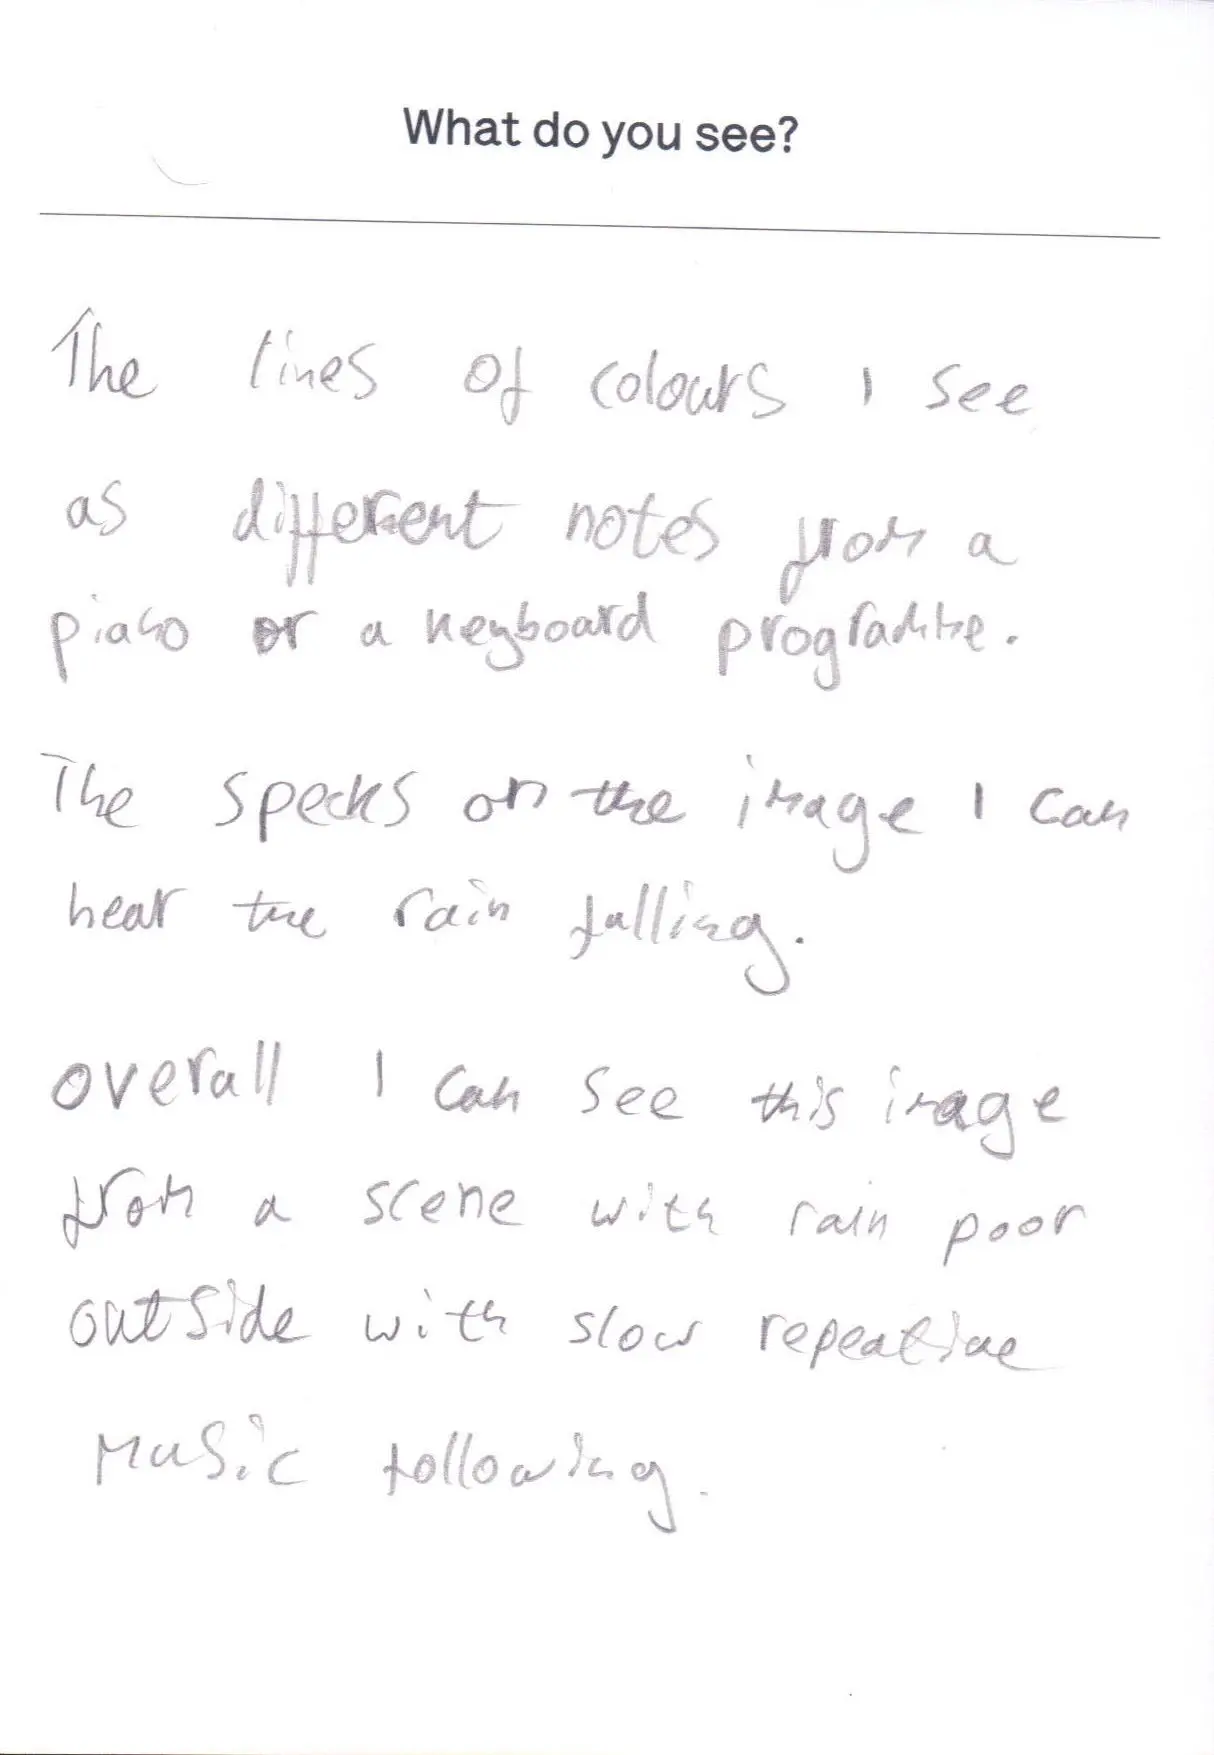 What do you see?
The lines of colours I see
as different notes from a
piano or a keyboard programme.
The specks on the image I can
hear the rain falling.
overall I can see this image
from a scene with rain poor
outside with slow repeative
Music following.